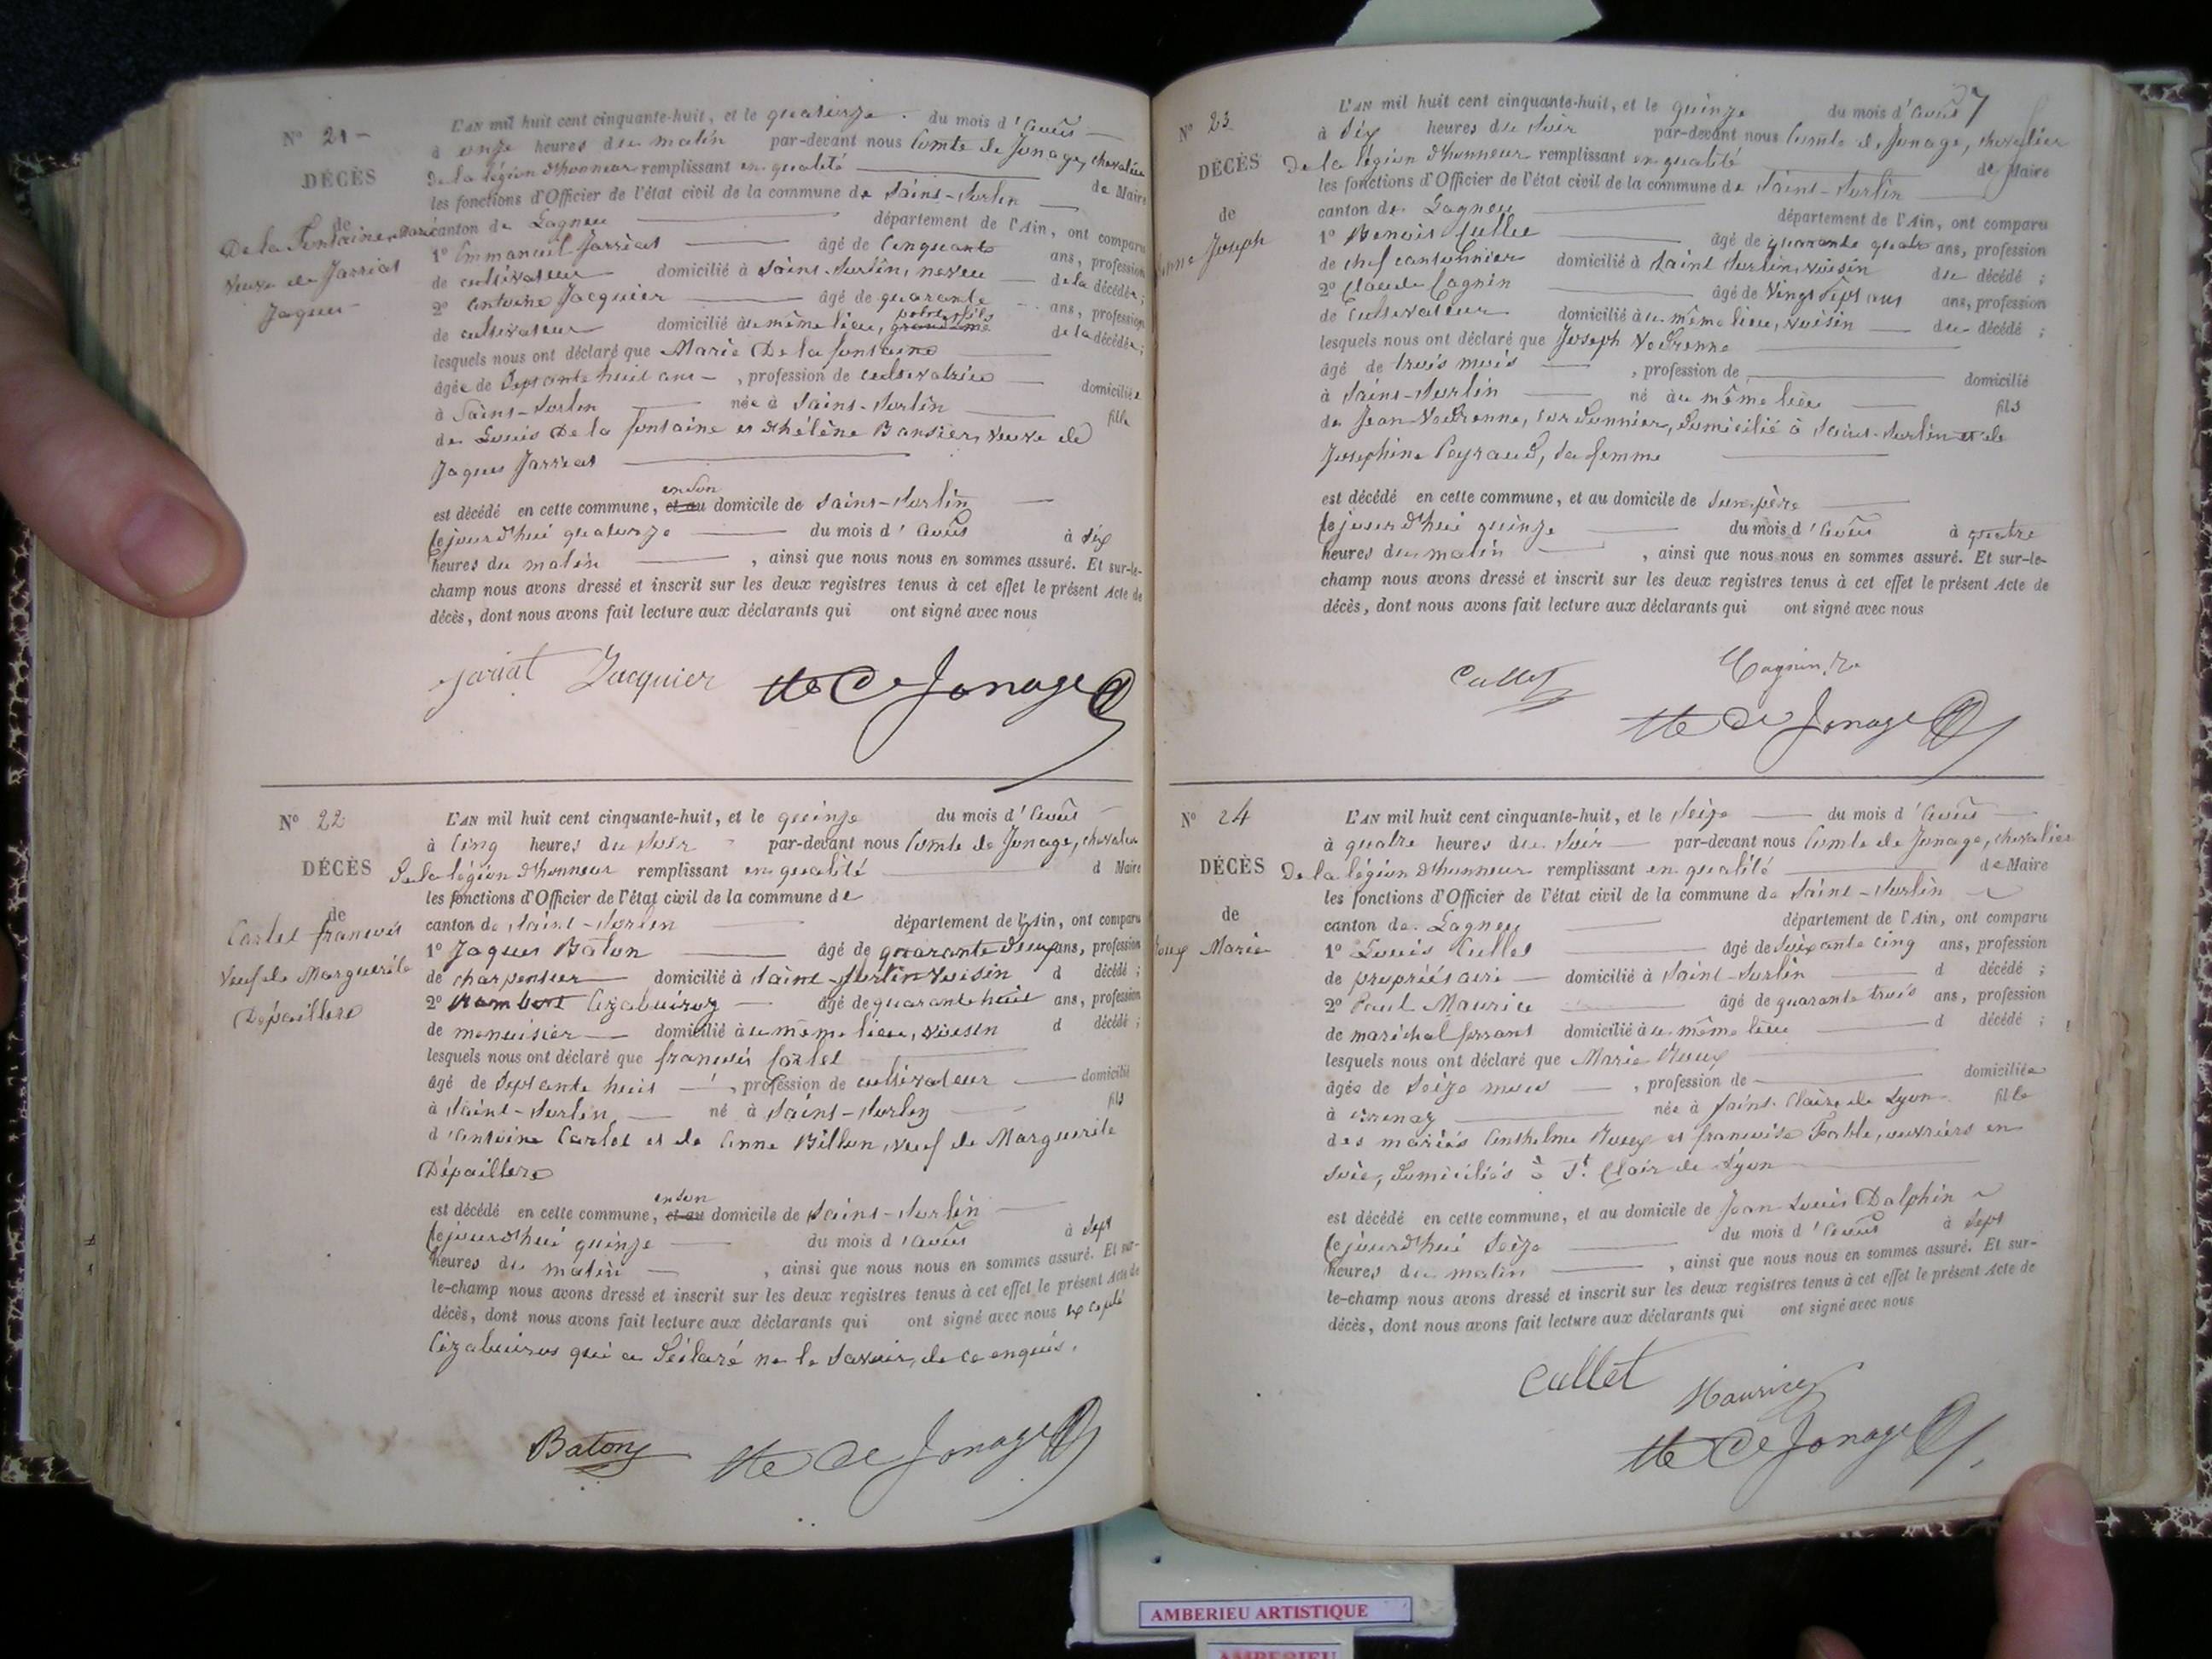 N° 21 -
DÉCÈS
de
De la Fontaine, Marie
veuve de Jarriat
Jaques -
L'AN mil huit cent cinquante-huit, et le quatorze du mois d'août
à onze heures du matin par-devant nous Comte de Jonage, chevalier
de la légion d'honneur remplissant en qualité de Maire
les fonctions d'Officier de l'état civil de la commune de Saint-Sorlin
canton de Lagneu département de l'Ain, ont comparu
1° Emmanuel Jarriat âgé de cinquante ans, profession
de cultivateur domicilié à Saint-Sorlin, neveu de la décédée;
2° Antoine Jacquier âgé de quarante ans, profession
de cultivateur domicilié au même lieu, petit fils de la décédée;
lesquels nous ont déclaré que Marie De la fontaine
âgée de septante huit ans, profession de cultivatrice domiciliée
à Saint-Sorlin née à Saint-Sorlin fille
de Louis De la fontaine et d'hélène Bansier, veuve de
Jaques Jarriat
est décédé en cette commune, et au en son domicile de Saint-Sorlin
cejourd'hui quatorze du mois d'août à six
heures du matin, ainsi que nous nous en sommes assuré. Et sur-le-
champ nous avons dressé et inscrit sur les deux registres tenus à cet effet le présent Acte de
décès, dont nous avons fait lecture aux déclarants qui ont signé avec nous
Jariat Jacquier Cte de Jonage
N° 22
DÉCÈS
de
Carlet françois
veuf de Marguerite
Dépaillere
L'AN mil huit cent cinquante-huit, et le quinze du mois d'août
à cinq heures du soir par-devant nous Comte de Jonage, chevalier
de la légion d'honneur remplissant en qualité d Maire
les fonctions d'Officier de l'état civil de la commune de
canton de Saint-Sorlin département de l'Ain, ont comparu
1° Jaques Baton âgé de quarante deux ans, profession
de charpentier domicilié à Saint-Sorlin voisin d décédé;
2° Rambert âgé de quarante huit ans, profession
de menuisier domicilié au même lieu, voisin d décédé;
lesquels nous ont déclaré que françois Carlet
âgé de septante huit, profession de cultivateur domicilié
à Saint-Sorlin né à Saint-Sorlin fils
d'Antoine Carlet et de Anne Billon, veuf de Marguerite
Dépaillere
est décédé en cette commune, et au en son domicile de Saint-Sorlin
cejourd'hui quinze du mois d'août à sept
heures du matin, ainsi que nous nous en sommes assuré. Et sur-
le-champ nous avons dressé et inscrit sur les deux registres tenus à cet effet le présent Acte de
décès, dont nous avons fait lecture aux déclarants qui ont signé avec nous excepté
qui a déclaré ne le savoir, de ce enquis.
Baton Cte de Jonage
7
N° 23
DÉCÈS
de
Joseph
L'AN mil huit cent cinquante-huit, et le quinze du mois d'août
à six heures du soir par-devant nous Comte de Jonage, chevalier
de la légion d'honneur remplissant en qualité de Maire
les fonctions d'Officier de l'état civil de la commune de Saint-Sorlin
canton de Lagneu département de l'Ain, ont comparu
1° Benoit Cullet âgé de quarante quatre ans, profession
de chef cantonnier domicilié à Saint Sorlin, voisin du décédé;
2° Claude Cagnin âgé de vingt sept ans ans, profession
de Cultivateur domicilié au même lieu, voisin du décédé;
lesquels nous ont déclaré que Joseph
âgé de trois mois, profession de domicilié
à Saint-Sorlin né au même lieu fils
de Jean cordonnier, domicilié à Saint-Sorlin et de
Josephine Peyraud, sa femme
est décédé en cette commune, et au domicile de son père
cejourd'hui quinze du mois d'août à quatre
heures du matin, ainsi que nous nous en sommes assuré. Et sur-le-
champ nous avons dressé et inscrit sur les deux registres tenus à cet effet le présent Acte de
décès, dont nous avons fait lecture aux déclarants qui ont signé avec nous
Cullet Cagnin
Cte de Jonage
N° 24
DÉCÈS
de
Roux Marie
L'AN mil huit cent cinquante-huit, et le seize du mois d'août
à quatre heures du soir par-devant nous Comte de Jonage, chevalier
de la légion d'honneur remplissant en qualité de Maire
les fonctions d'Officier de l'état civil de la commune de Saint-Sorlin
canton de Lagneu département de l'Ain, ont comparu
1° Louis Cullet âgé de soixante cinq ans, profession
de propriétaire domicilié à Saint-Sorlin d décédé;
2° Paul Maurice âgé de quarante trois ans, profession
de maréchal ferrant domicilié au même lieu d décédé;
lesquels nous ont déclaré que Marie Roux
âgée de seize mois, profession de domiciliée
à née à Saint-Claire de Lyon fille
des mariés Anthelme Roux et françoise ouvriers en
soie, domiciliés à St. Clair de Lyon
est décédé en cette commune, et au domicile de Jean Louis Dalphin
cejourd'hui seize du mois d'août à sept
heures du matin, ainsi que nous nous en sommes assuré. Et sur-
le-champ nous avons dressé et inscrit sur les deux registres tenus à cet effet le présent Acte de
décès, dont nous avons fait lecture aux déclarants qui ont signé avec nous
Cullet Maurice
Cte de Jonage
AMBERIEU ARTISTIQUE
AMBERIEU